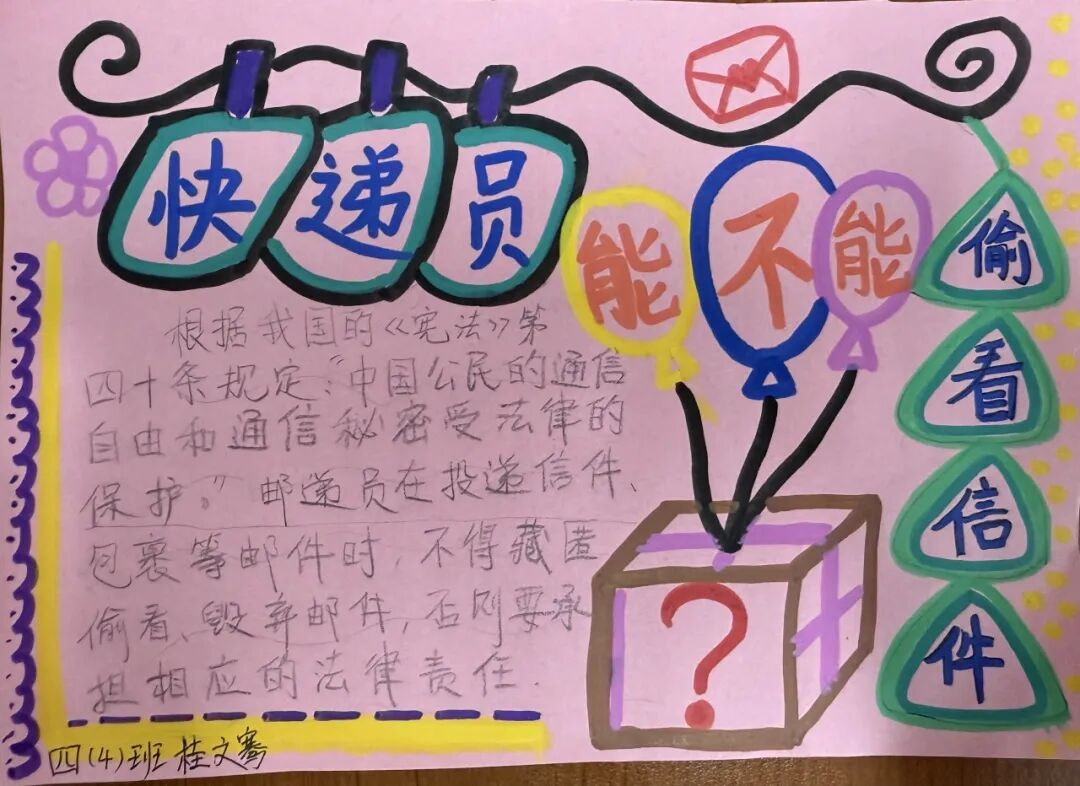 快递员
能不能
偷看信件
根据我国的《宪法》第
四十条规定:“中国公民的通信
自由和通信秘密受法律的
保护。”邮递员在投递信件、
包裹等邮件时,不得藏匿
偷看、毁弃邮件,否则要承
担相应的法律责任.
?
四(4)班 桂文骞